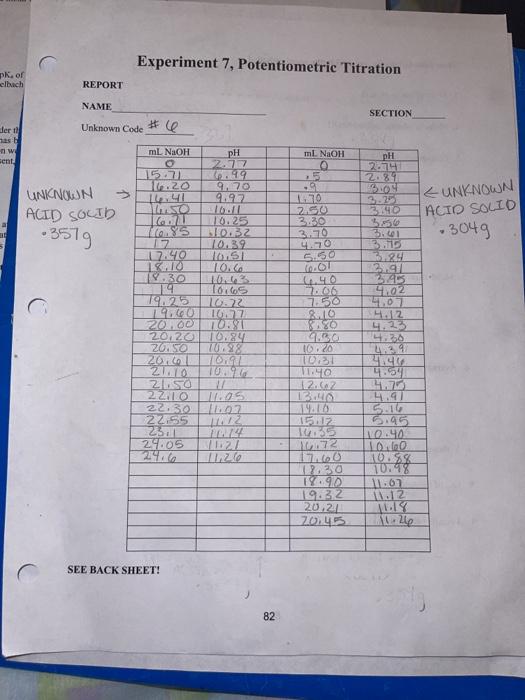 pKa of
elbach
Experiment 7, Potentiometric Titration
REPORT
NAME
SECTION
Unknown Code # 6
mL NaOH pH mL NaOH pH
0 2.77 0 2.74
15.71 6.99 .5 2.89
16.20 9.70 .9 3.04
16.41 9.97 1.70 3.25
16.50 10.11 2.50 3.40
16.71 10.25 3.30 3.56
16.85 10.32 3.70 3.61
17 10.39 4.70 3.75
17.40 10.51 5.50 3.84
18.10 10.6 6.01 3.91
18.30 10.63 6.40 3.95
19 10.65 7.06 4.02
19.25 10.72 7.50 4.07
19.60 10.77 8.10 4.12
20.00 10.81 8.80 4.23
20.20 10.84 9.30 4.30
20.50 10.88 10.20 4.39
20.61 10.91 10.31 4.46
21.10 10.96 11.40 4.54
21.50 11 12.62 4.75
22.10 11.05 13.40 4.91
22.30 11.07 14.10 5.16
22.55 11.12 15.12 5.95
23.1 11.14 16.35 10.40
24.05 11.21 16.72 10.60
24.6 11.26 17.60 10.88
18.30 10.98
18.90 11.07
19.32 11.12
20.21 11.18
20.45 11.26
UNKNOWN →
ACID SOLID
.357g
← UNKNOWN
ACID SOLID
.304g
SEE BACK SHEET!
82